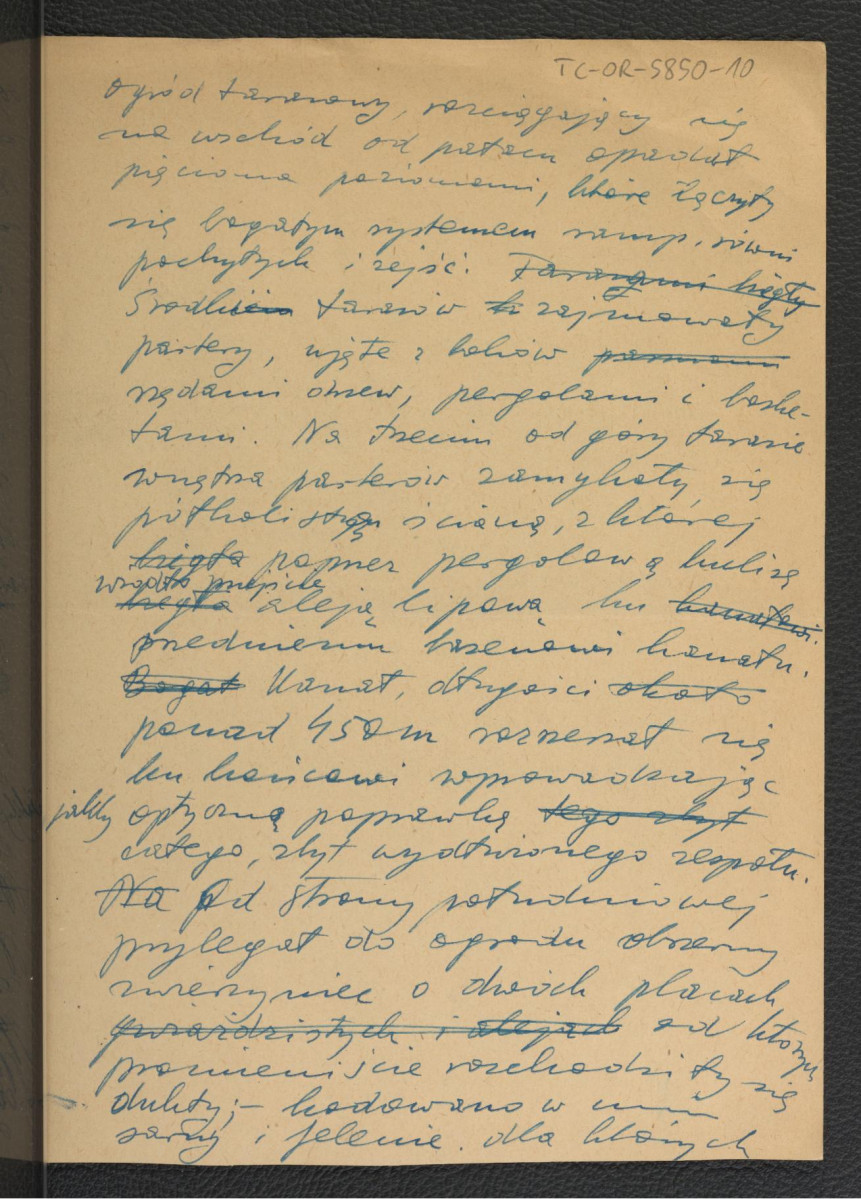 TC-OR-5850-10
ogród tarasowy, rozciągający się
na wschód od pałacu opadał
pięcioma poziomami, które łączyły
się bogatym systemem ramp, równi
pochyłych i zejść. Tarasami biegły
Środkiem tarasów zajmowały
partery, ujęte z boków pasmami
rzędami drzew, pergolami i boske-
tami. Na trzecim od góry tarasie
wnętrza parterów zamykały się
półkolistą ścianą, z której
biegła poprzez pergolową kulisę
wiodło przejście
biegła aleją lipową ku kanałowi.
przedniemu basenowi kanału.
Bogat Kanał, długości około
ponad 450 m rozszerzał się
ku końcowi wprowadzając
jakby optyczną poprawkę tego zbyt
całego, zbyt wydłużonego zespołu.
Na Od strony południowej
przylegał do ogrodu obszerny
zwierzyniec o dwóch placach
gwiaździstych i alejach od których
promieniście rozchodziły się
dukty; – hodowano w nim
sarny i jelenie. dla których